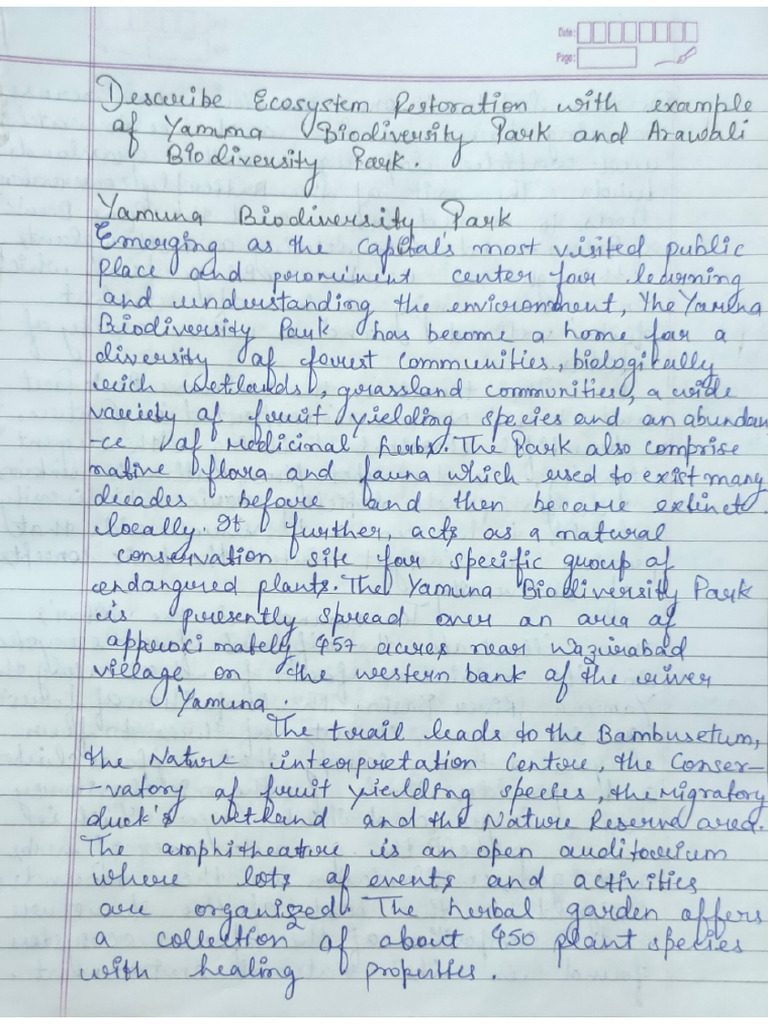 Date:
Page:
Describe Ecosystem Restoration with example
of Yamuna Biodiversity Park and Arawali
Biodiversity Park.
Yamuna Biodiversity Park
Emerging as the capital's most visited public
place and prominent center for learning
and understanding the environment, The Yamuna
Biodiversity Park has become a home for a
diversity of forest communities, biologically
rich wetlands, grassland communities, a wide
variety of fruit yielding species and an abundan
-ce of medicinal herbs. The Park also comprise
native flora and fauna which used to exist many
decades before and then became extinct
locally. It further, acts as a natural
conservation site for specific group of
endangered plants. The Yamuna Biodiversity Park
is presently spread over an area of
approximately 457 acres near Wazirabad
village on the western bank of the river
Yamuna.
The trail leads to the Bambusetum,
the Nature interpretation Centre, the Conser-
-vatory of fruit yielding species, the Migratory
duck's wetland and the Nature Reserve area.
The amphitheatre is an open auditorium
where lots of events and activities
are organized. The herbal garden offers
a collection of about 450 plant species
with healing properties.